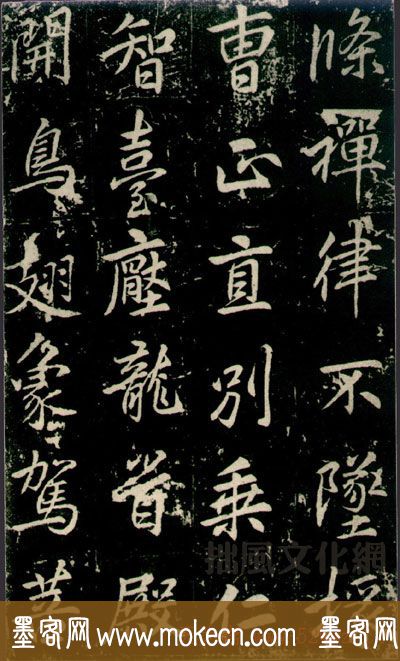 條禪律不墜
曹正直別乘仁
智臺壓龍首殿
開鳥翅象駕
拙風文化網
墨客网 www.mokecn.com 墨客网